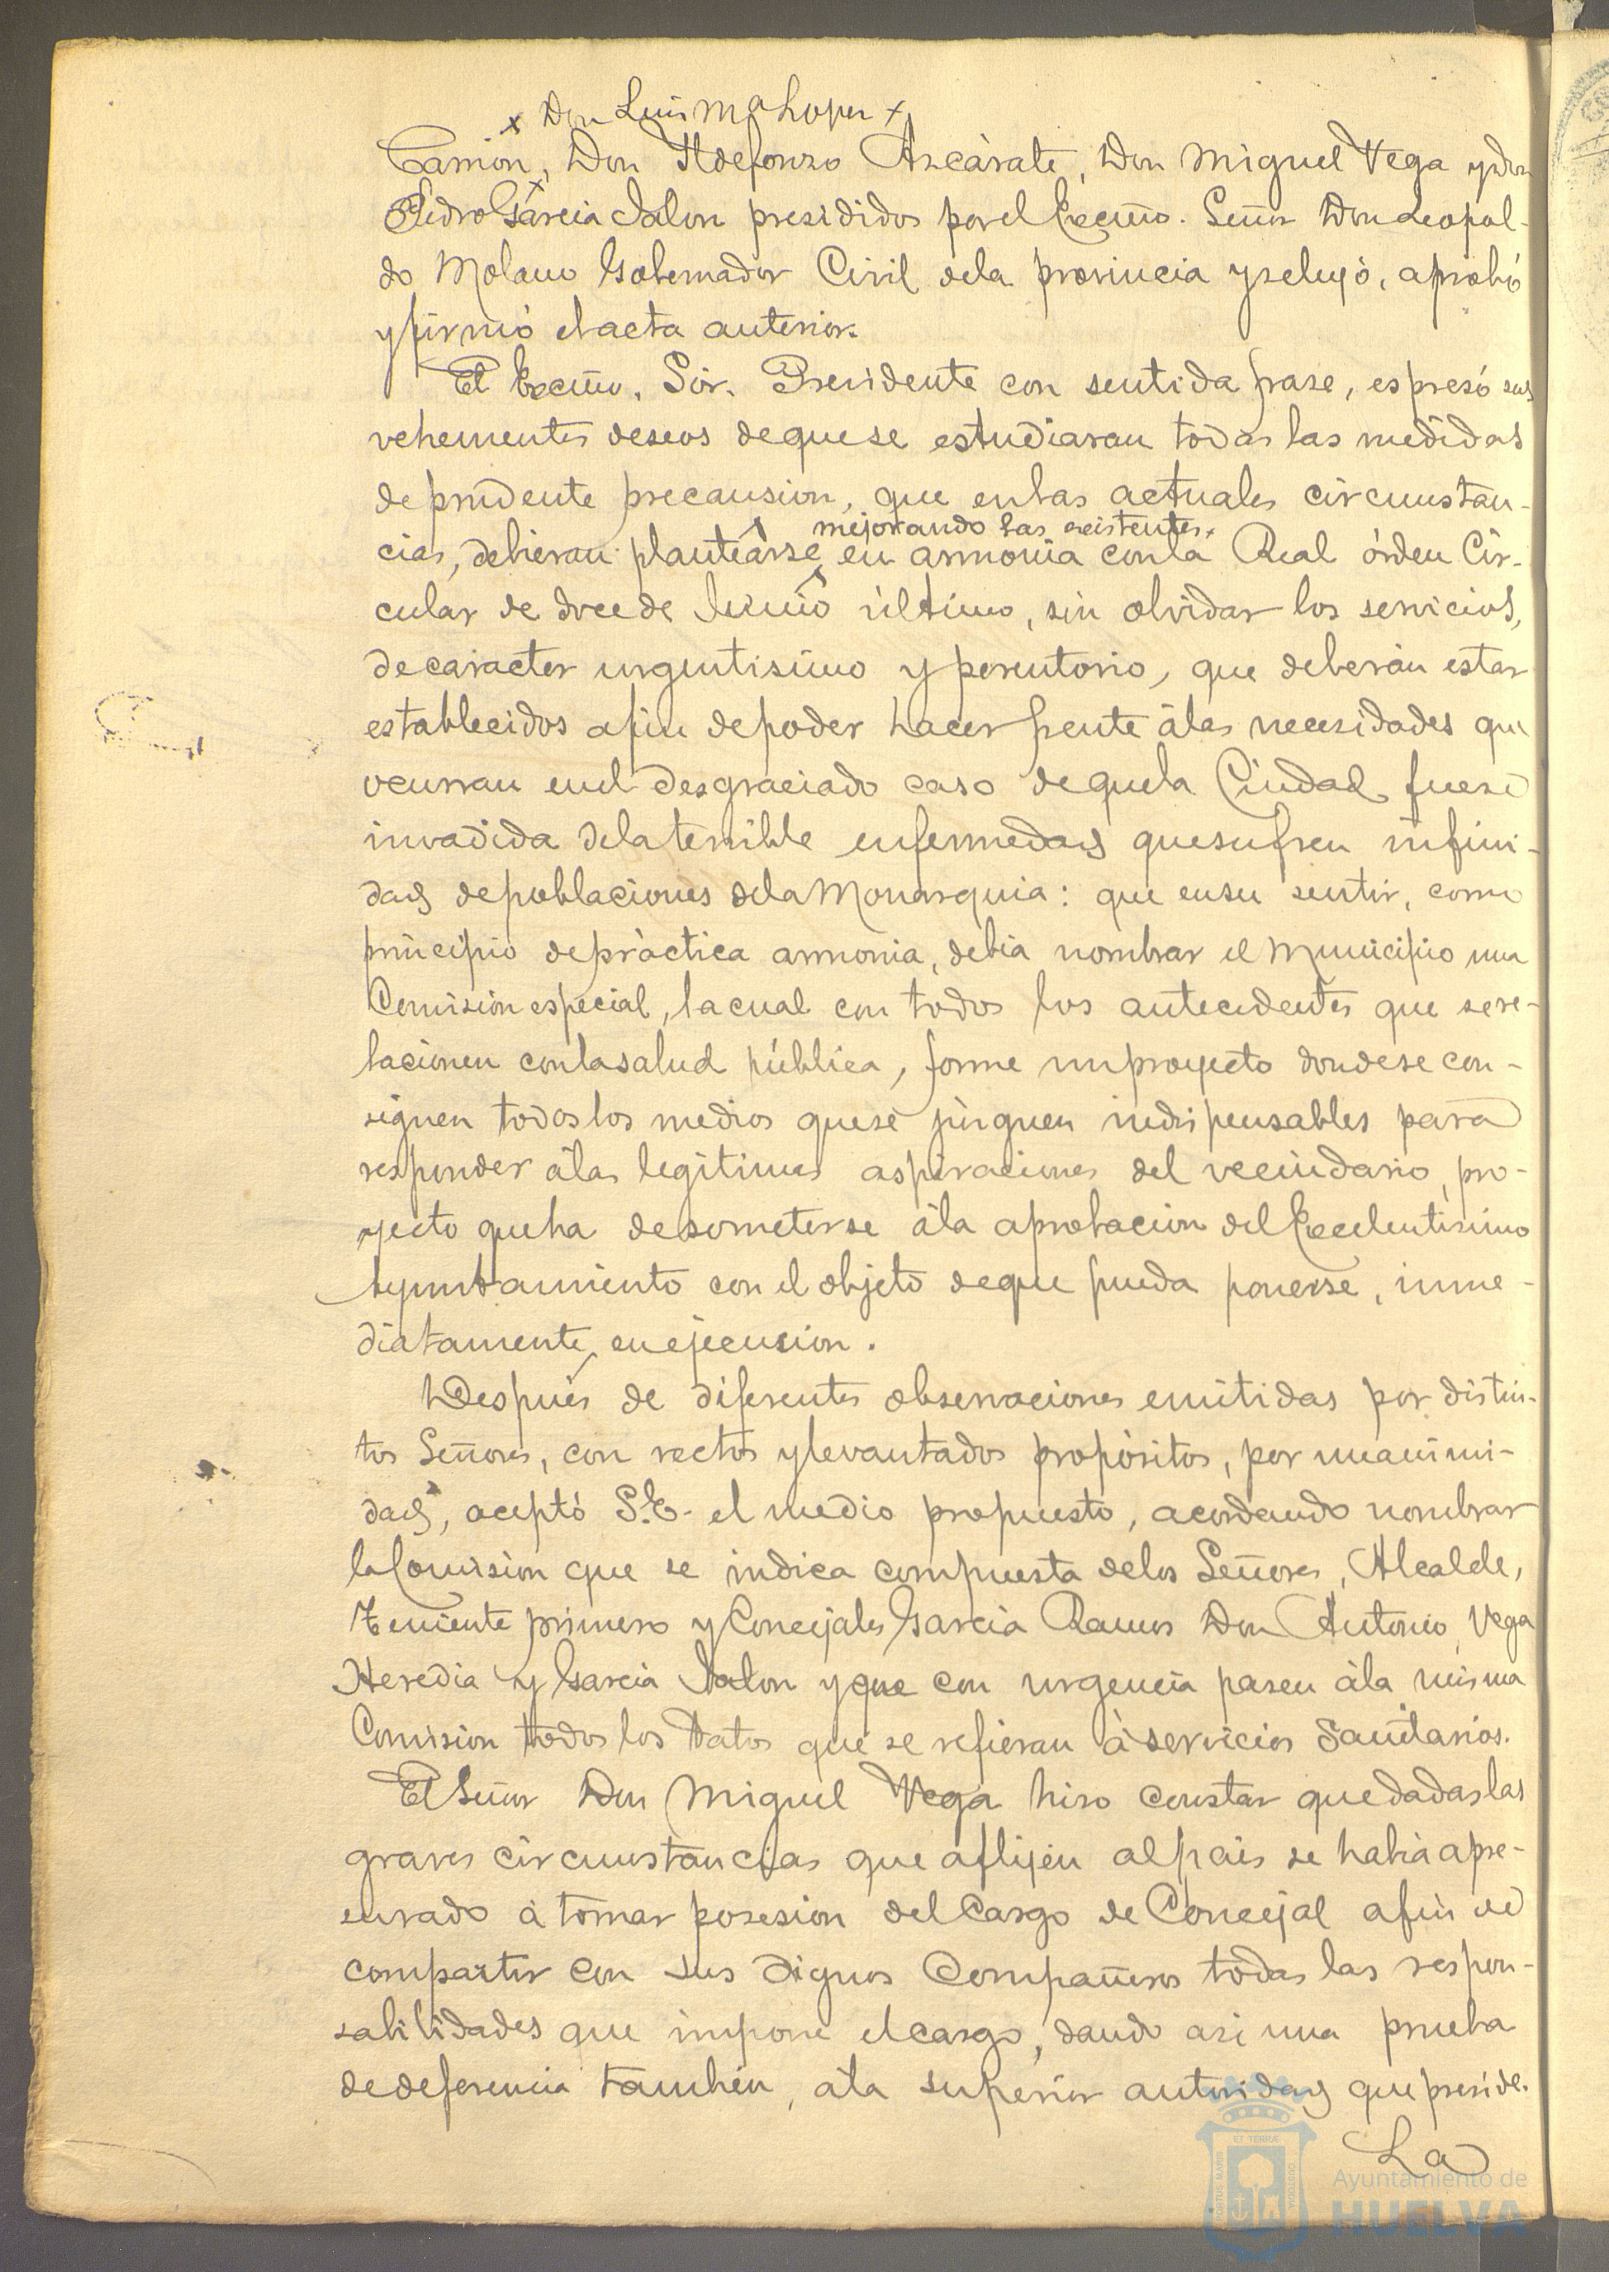 x Don Luis Mª Lopez x
Carrion, Don Ildefonso Azcárate, Don Miguel Vega y Don
Pedro Garcia Jalon presididos por el Excmo. Señor Don Leopol-
do Molano Gobernador Civil de la provincia y se leyó, aprobó
y firmó el acta anterior.
El Excmo. Sór. Presidente con sentida frase, espresó sus
vehementes deseos de que se estudiaran todas las medidas
de prudente precausion, que en las actuales circunstan-
mejorando las existentes.
cias, debieran plantearse, en armonia con la Real órden Cir-
cular de doce de Junio último, sin olvidar los servicios,
de caracter urgentisimo y perentorio, que deberán estar
establecidos afin de poder hacer frente á las necesidades que
ocurran en el desgraciado caso de que la Ciudad fuese
invadida de la terrible enfermedad que sufren infini-
dad de poblaciones de la Monarquia: que en su sentir, como
principio de práctica armonia, debia nombrar el Municipio una
Comision especial, la cual con todos los antecedentes que se re-
lacionen con la salud pública, forme un proyecto donde se con-
signen todos los medios que se juzguen indispensables para
responder á las legitimas aspiraciones del vecindario, pro-
yecto que ha de someterse á la aprobacion del Excelentisimo
Ayuntamiento con el objeto de que pueda ponerse, inme-
diatamente, en ejecusion.
Despues de diferentes observaciones emitidas por distin-
tos Señores, con rectos y levantados propósitos, por unanimi-
dad, aceptó S.E. el medio propuesto, acordando nombrar
la Comision que se indica compuesta de los Señores, Alcalde,
Teniente primero y Concejales Garcia Ramos Don Antonio, Vega
Heredia y Garcia Jalon y que con urgencia pasen á la misma
Comision todos los datos que se refieran á servicios Sanitarios.
El Señor Don Miguel Vega hizo constar que dadas las
graves circunstancias que aflijen al pais se habia apre-
surado á tomar posesion del Cargo de Concejal afin de
compartir con sus dignos Compañeros todas las respon-
sabilidades que impone el cargo, dando asi una prueba
de deferencia tambien, á la superior autoridad que preside.
La
Ayuntamiento de
HUELVA